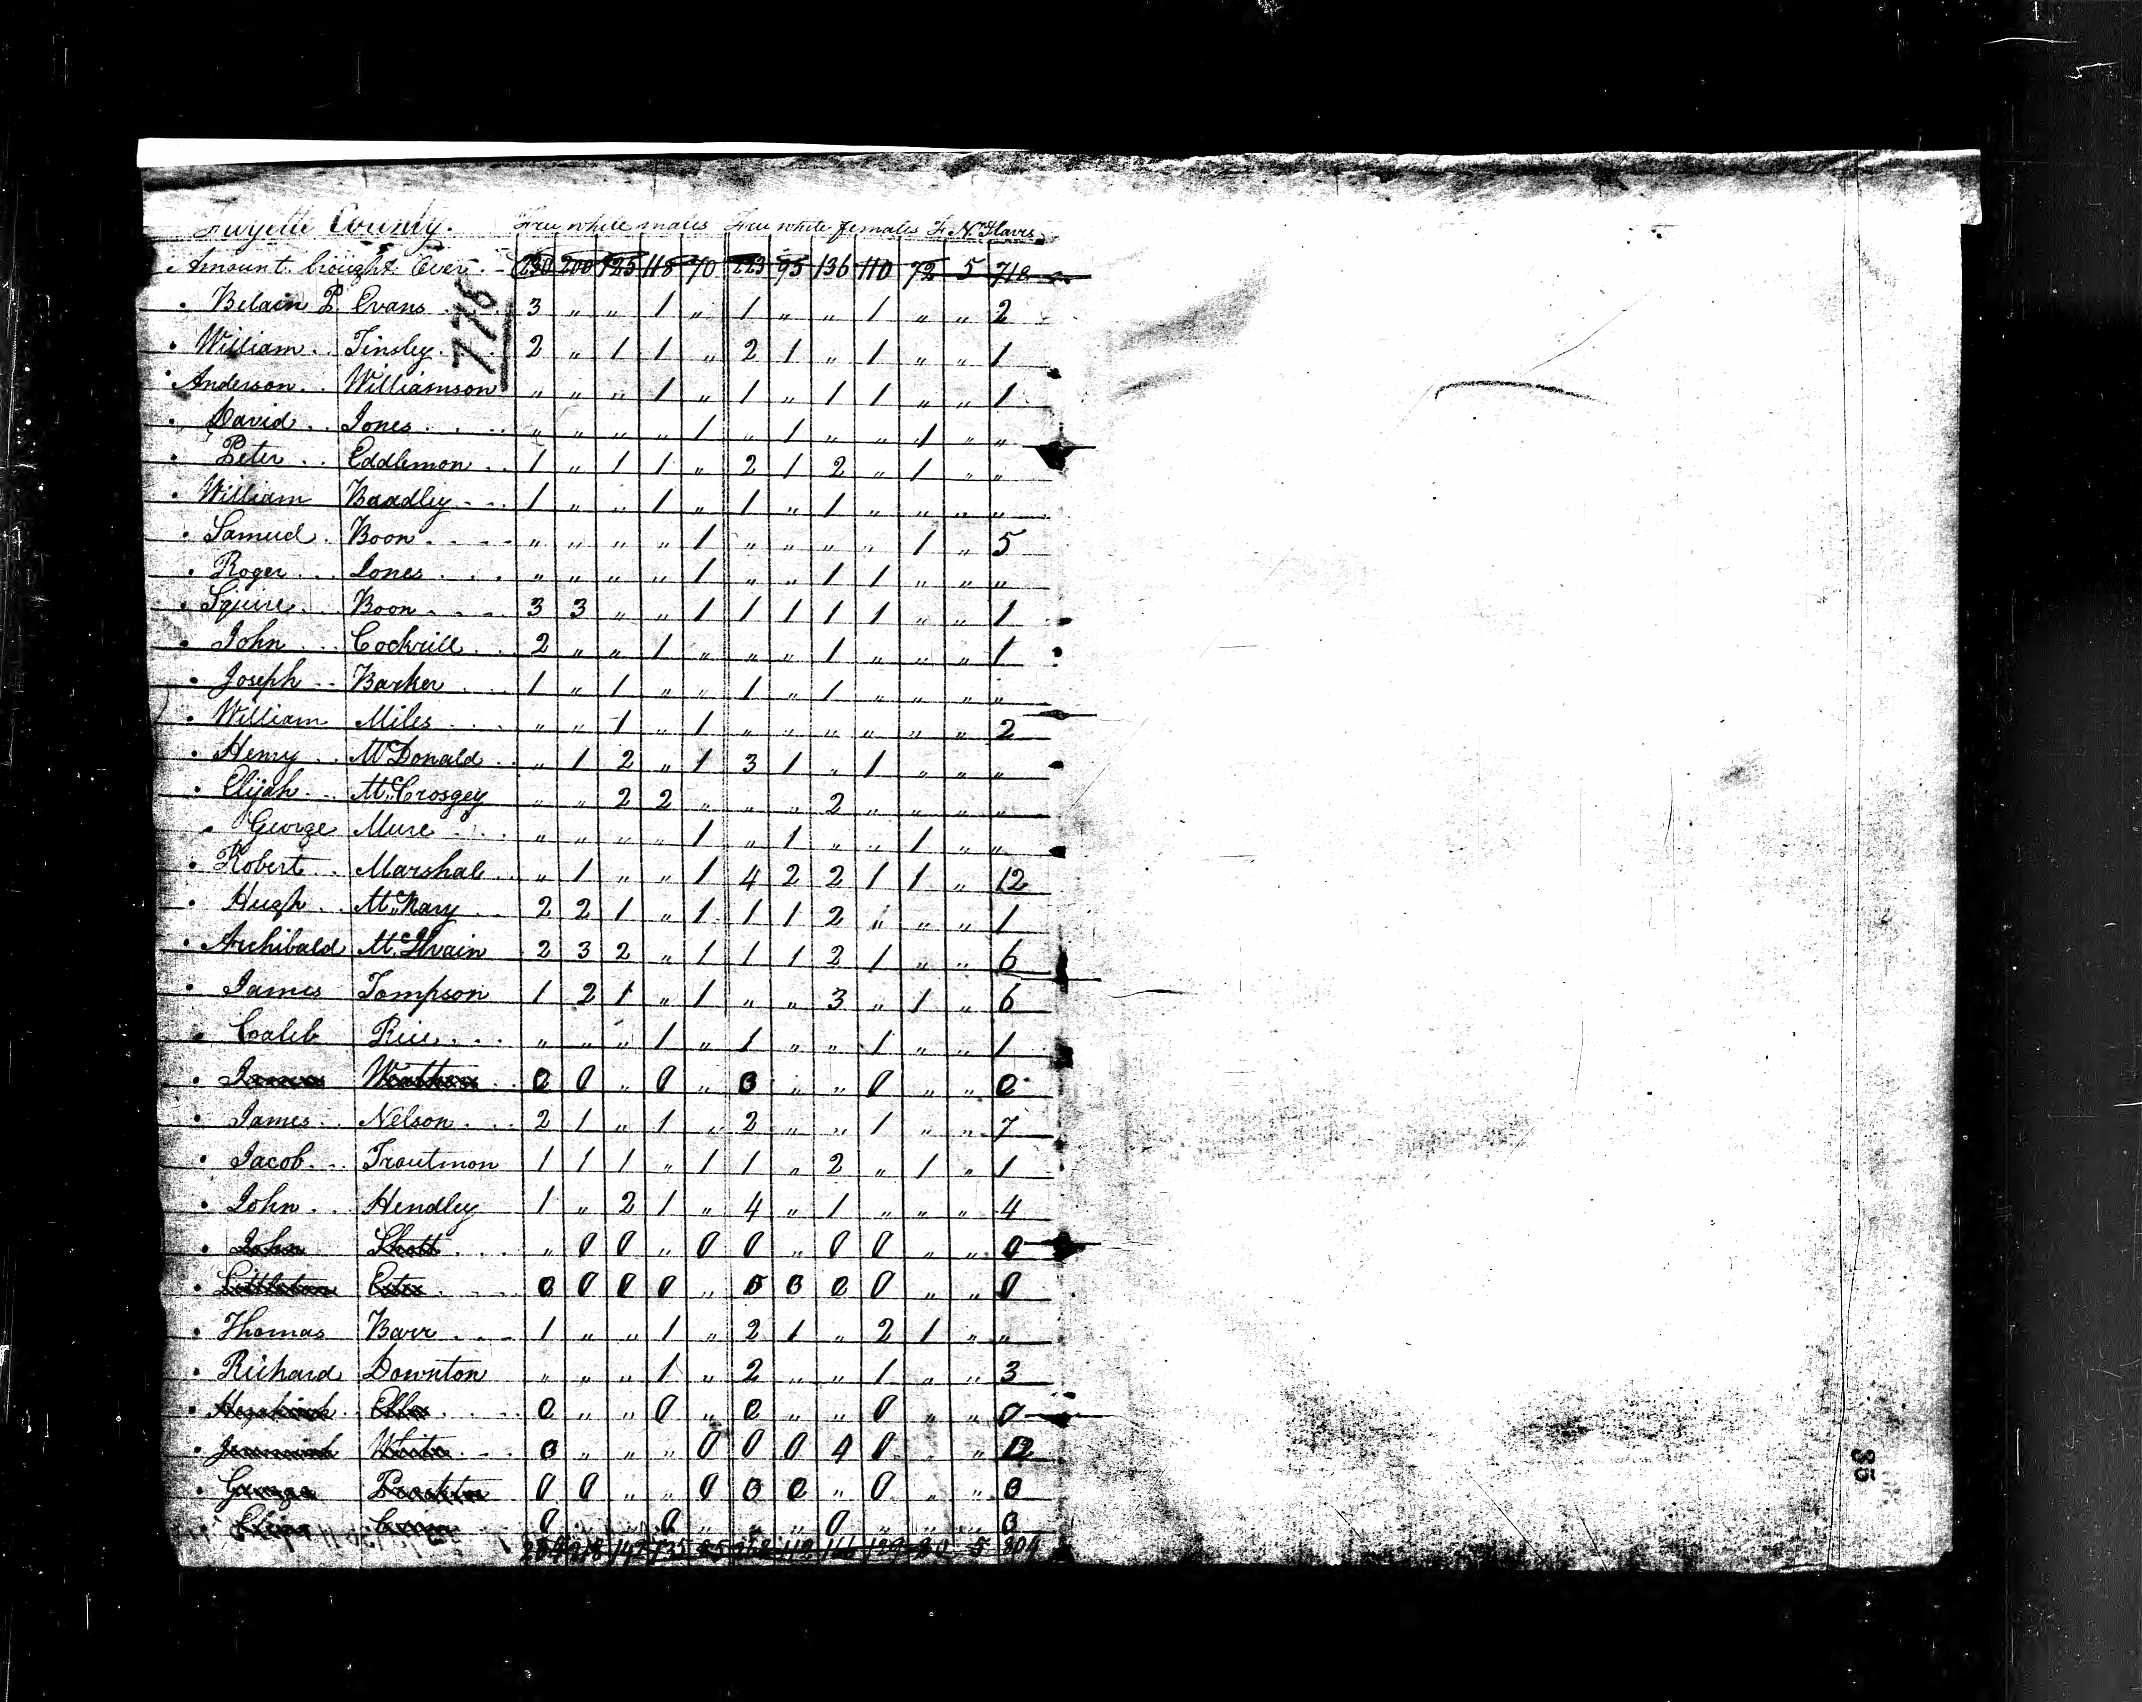 Fayette County. Free white males Free white females F. N. Slaves
Amount brought Over 230 200 125 118 70 223 95 136 110 72 5 718
776
Belain P Evans 3 " " 1 " 1 " " 1 " " 2
William Tinsley 2 " 1 1 " 2 1 " 1 " " 1
Anderson Williamson " " " 1 " 1 " 1 1 " " 1
David Jones " " " " 1 " 1 " " 1 " "
Peter Eddlemon 1 " 1 1 " 2 1 2 " 1 " "
William Baadley 1 " " 1 " 1 " 1 " " " "
Samuel Boon " " " " 1 " " " " 1 " 5
Roger Jones " " " " 1 " " 1 1 " " "
Squire Boon 3 3 " " 1 1 1 1 1 " " 1
John Cockrill 2 " " 1 " " " 1 " " " 1
Joseph Barker 1 " 1 " " 1 " 1 " " " "
William Miles " " 1 " 1 " " " " " " 2
Henry McDonald " 1 2 " 1 3 1 " 1 " " "
Elijah McCrosgey " " 2 2 " " " 2 " " " "
George Muse " " " " 1 " 1 " " 1 " "
Robert Marshal " 1 " " 1 4 2 2 1 1 " 12
Hugh McNary 2 2 1 " 1 1 1 2 " " " 1
Archibald McIlvain 2 3 2 " 1 1 1 2 1 " " 6
James Tompson 1 2 1 " 1 " " 3 " 1 " 6
Coaleb Rice " " " 1 " 1 " " 1 " " 1
James 0 0 " 0 " 0 " " 0 " " 0
James Nelson 2 1 " 1 " 2 " " 1 " " 7
Jacob Troutmon 1 1 1 " 1 1 " 2 " 1 " 1
John Hendley 1 " 2 1 " 4 " 1 " " " 4
John Shott " 0 0 " 0 0 " 0 0 " " 0
Littleton Estes 0 0 0 0 " 0 0 0 0 " " 0
Thomas Barr 1 " " 1 " 2 1 " 2 1 " "
Richard Downton " " " 1 " 2 " " 1 " " 3
Hezekiah Ellis 0 " " 0 " 0 " " 0 " " 0
Jeremiah White 0 " " " 0 0 0 0 0 " 12
George 0 0 " " 0 0 0 " 0 " " 0
0 0 0 0
218 142 135 85 112 5
35